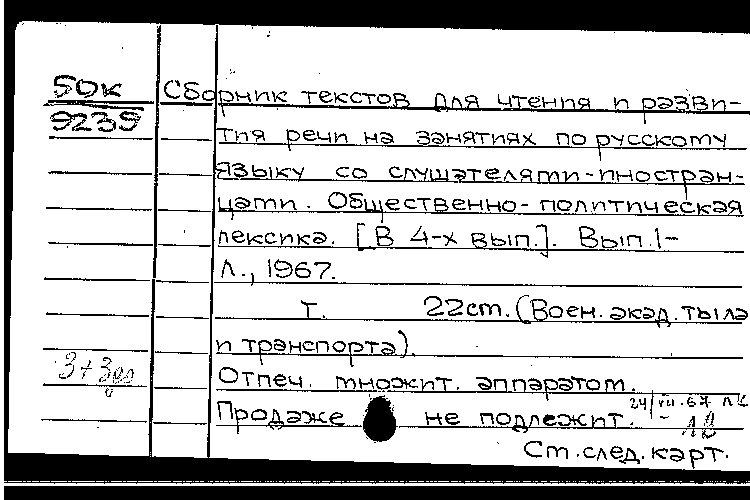 50к Сборник текстов для чтения и разви-
9239 тия речи на занятиях по русскому
языку со слушателями-иностран-
цами. Общественно-политическая
лексика. [В 4-х вып.]. Вып.1-
Л., 1967.
Т. 22см. (Воен. акад. тыла
и транспорта).
Отпеч. множит. аппаратом.
Продаже не подлежит.
Ст. след. карт.